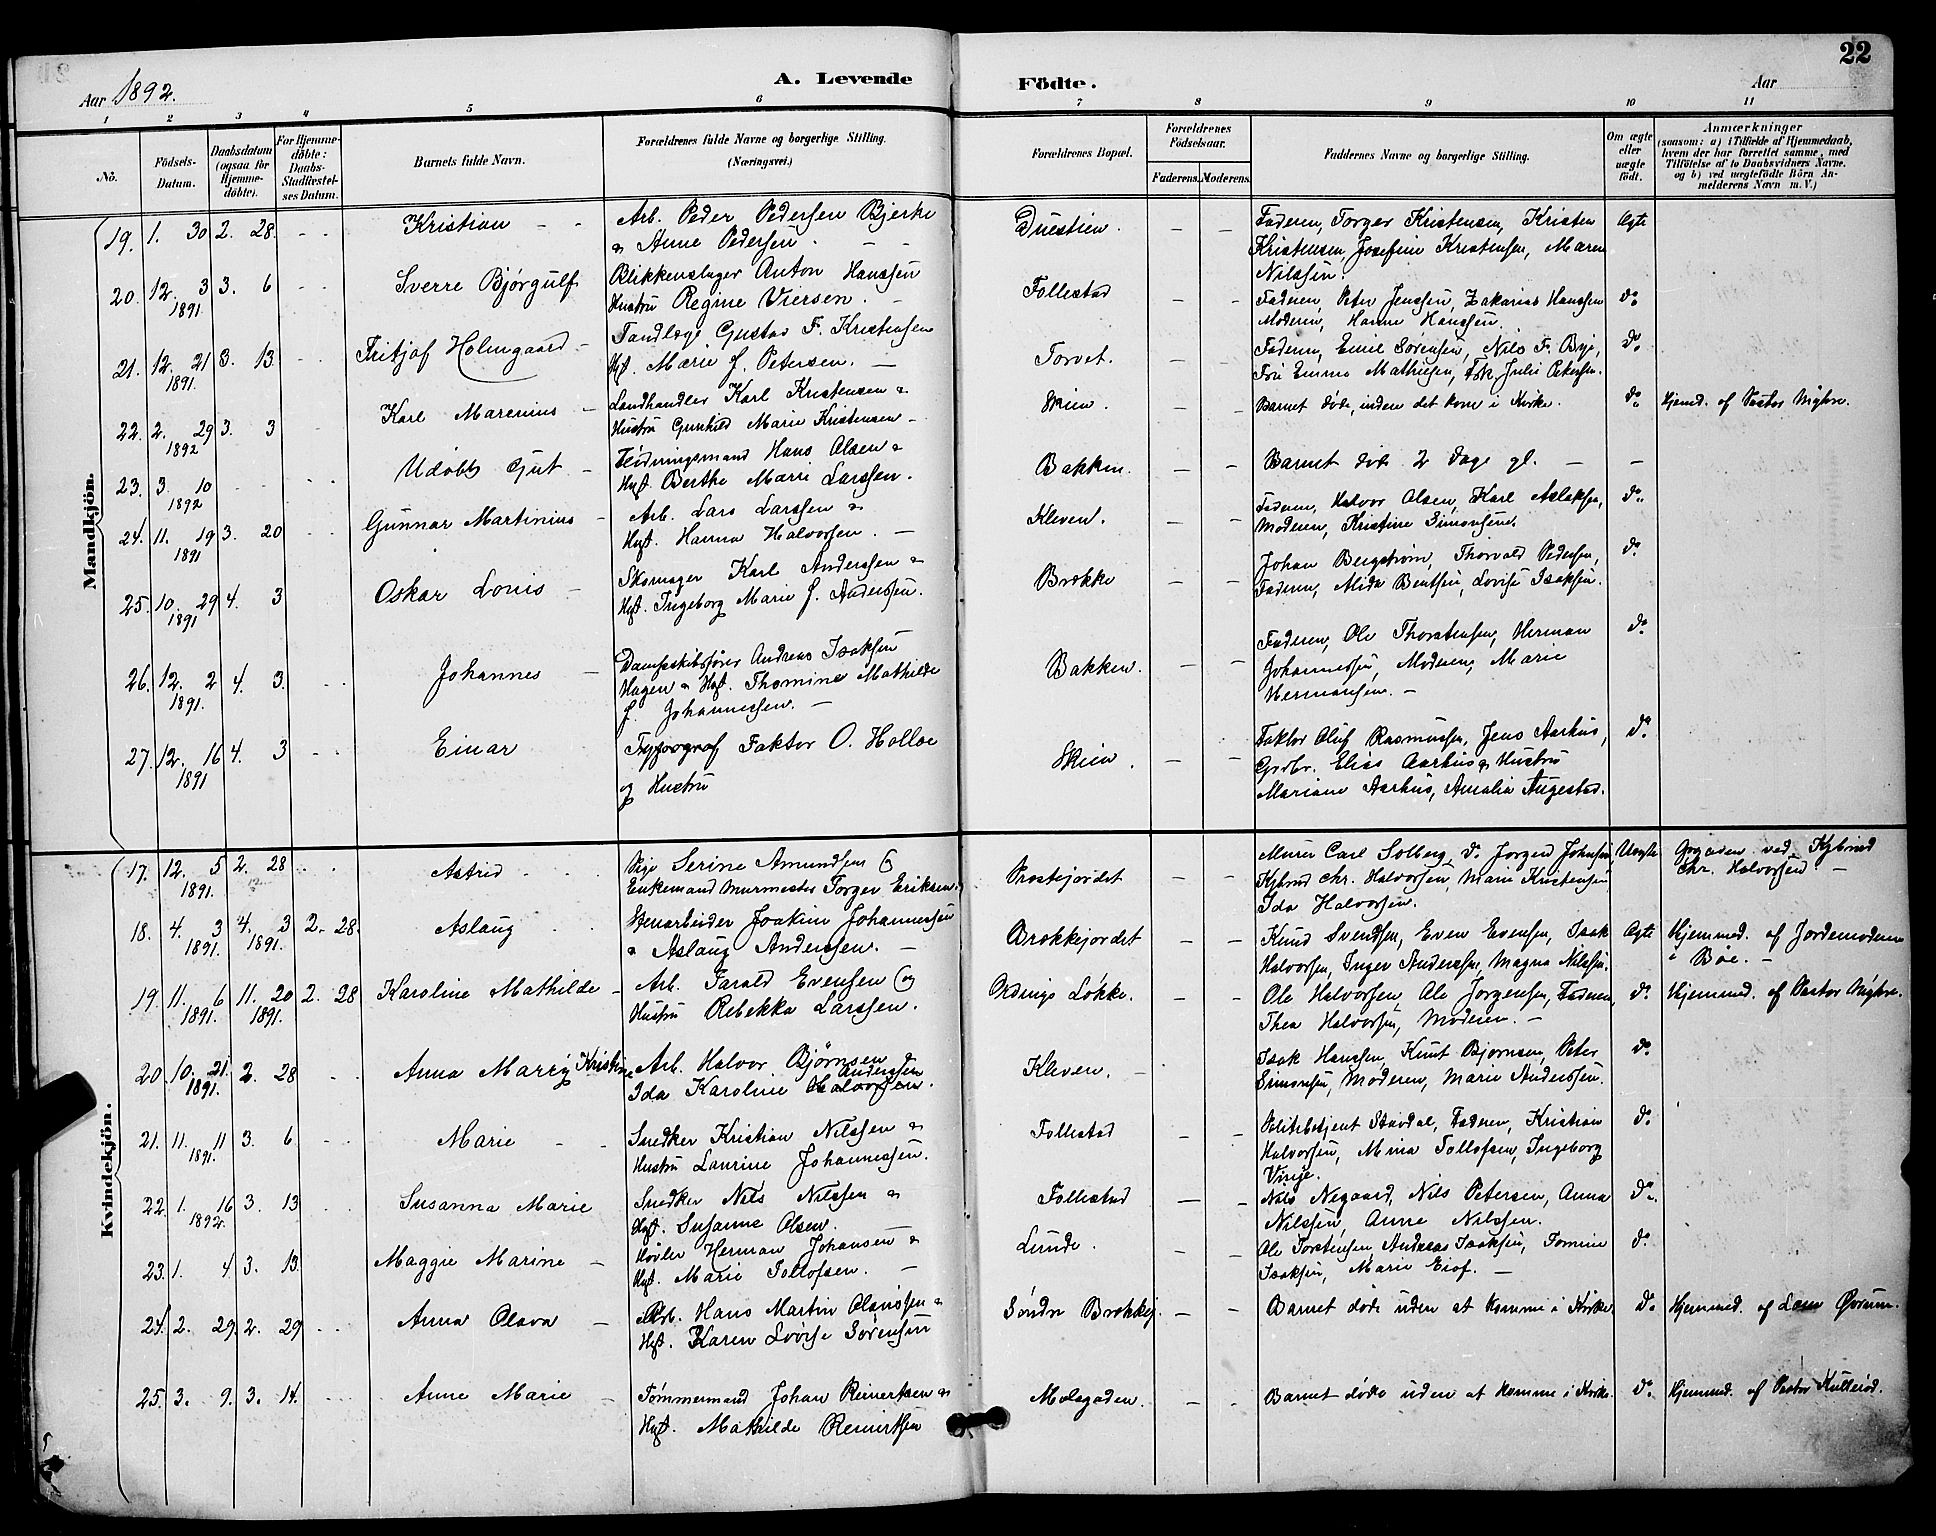 22
Aar 1892.
A. Levende Födte.
Aar
1 2 3 4 5 6 7 8 9 10 11
No.
Födsels-Datum.
Daabsdatum (ogsaa for Hjemme-döbte).
For Hjemme-döbte: Daabs-Stadfæstel-ses Datum.
Barnets fulde Navn.
Forældrenes fulde Navne og borgerlige Stilling. (Næringsvei.)
Forældrenes Bopæl.
Forældrenes Födselsaar.
Faderens. Moderens.
Faddernes Navne og borgerlige Stilling.
Om ægte eller uægte födt.
Anmærkninger
(saasom: a) i Tilfælde af Hjemmedaab,
hvem der har forrettet samme, med
Tilföielse af to Daabsvidners Navne.
og b) ved uægtefödte Börn An-
melderens Navn m. V.)
Mandkjön.
19. 1. 30 2. 28. - - Kristian - - Arb. Peder Pedersen Bjerke
& Anne Pedersen. - -
Duestien. - - Faderen, Torger Kristensen, Kristen
Kristensen, Josefine Kristensen, Maren
Nilssen. Ægte
20. 12. 3 1891 3. 6 - - Sverre Bjørgulf Blikkenslager Anton Hanssen
Hustru Regine Viersen. -
Follestad - - Faderen, Peter Jenssen, Zakarias Hanssen
Moderen, Hanne Hanssen. do
21. 12. 21 1891. 3. 13 - - Fritjof Holmgaard - Tandlæge Gustav F. Kristensen
Hst. Marie f. Petersen. -
Torvet. - - Faderen, Emil Sørensen, Nils F. Bye,
Fru Emma Mathiesen, Frk. Julie Petersen. do
22. 2. 29 1892 3. 3 Karl Marenius - Landhandler Karl Kristensen &
Hustru Gunhild Marie Kristensen -
Skien. - - Barnet døde, inden det kom i Kirke. do Hjemmd. af Pastor
23. 3. 10 1892 - - - Udøbt Gut - Hans Olsen &
Hst. Berthe Marie Larssen.
Bakken. - - Barnet døde 2 Dage gl. - -
24. 11. 19 1891 3. 20 - - Gunnar Martinius - Arb. Lars Larssen &
Hst. Hanna Halvorsen. -
Kleven. - - Faderen, Halvor Olsen, Karl Aslaksen,
Moderen, Kristine Simonsen. do
25. 10. 29 1891 4. 3 Oskar Louis - Skomager Karl Anderssen &
Hst. Ingeborg Marie f. Anderssen.
Brække - - Johan Bergstrøm, Thorvald Pedersen,
Faderen, Bentsen, Lovise Isaksen. do
26. 12. 2 1891. 4. 3. - - Johannes - Dampskibsfører Andreas Isaksen
Hagen & Hst. Thomine Mathilde
f. Johannessen. -
Bakken. - - Faderen, Ole Thorstensen, Herman
Johannessen, Moderen, Marie
Hermansen. - do
27. 12. 16 1891 4. 3 - - Einar Typograf Faktor O. Holloe
og Hustru
Skien. - - Faktor Oluf Rasmussen, Jens Aarhus,
Elias Aarhus & Hustru
Mariane Aarhus, Amalia Augestad. do
Kvindekjön.
17. 12. 5 1891. 2. 28 - - Astrid - - - Pige Serine Amundsen &
Enkemand Murmester Torger Eriksen.
Prestejordet - - Murer Carl Solberg, do Jørgen Johnsen
Kjbmd Chr. Halvorsen, Marie Kristensen
Ida Halvorsen. Uægte ved Kjbmd
Chr. Halvorsen. -
18. 4. 3 1891. 4. 3 1891. 2. 28. Aslaug - - Stenarbeider Joakim Johannessen
& Aslaug Anderssen. -
Brækkejordet - - Knud Svendsen, Even Evensen, Isak
Halvorsen, Inger Anderssen, Magna Nilssen. Ægte Hjemmed. af Jordemoderen
Bøe. -
19. 11. 6 1891. 11. 20 1891. 2. 28 Karoline Mathilde - Arb. Tarald Evensen og
Hustru Rebekka Larssen.
Løkke. - - Ole Halvorsen, Ole Jørgensen, Faderen,
Thea Halvorsen, Moderen. - do Hjemmed. af Pastor
20. 10. 21. 1891. 2. 28 - - Anna Marie Kristine Arb. Halvor Bjørnsen
Ida Karoline Halvorsen Anderssen.
Kleven. - Isak Hanssen, Knut Bjørnsen, Peter
Simonsen, Moderen, Marie Anderssen. do
21. 11. 11 1891. 3. 6 - - Marie - - Snedker Kristian Nilssen &
Hustru Laurine Johannessen.
Follestad - - Politibetjent Stavdal, Faderen, Kristian
Halvorsen, Mina Tollofsen, Ingeborg
Vinje. do
22. 1. 16 1892. 3. 13 - - Susanna Marie Snedker Nils Nilssen &
Hst. Susanne Olsen. -
Follestad - - Nils Negaard, Nils Petersen, Anna
Nilssen, Anne Nilssen. do
23. 1. 4 3. 13. - - Maggie Marine - Høvler Herman Johansen &
Hst. Marie Tollofsen. -
Lunde. - - Ole Torstensen, Andreas Isaksen, Tomine
Isaksen, Marie - do
24. 2. 29. 2. 29 - - Anna Olava - Arb. Hans Martin Olanssen &
Hst. Karen Lovise Sørensen
Søndre Brækkej. - - Barnet døde uden at komme i Kirke. do Hjemmed. af
25. 3. 9. 3. 14. - - Anne Marie - Tømmermand Johan Reinertsen &
Hst. Mathilde Reinertsen
Molegaden. - - Barnet døde uden at komme i Kirke. do Hjemmd. af Pastor